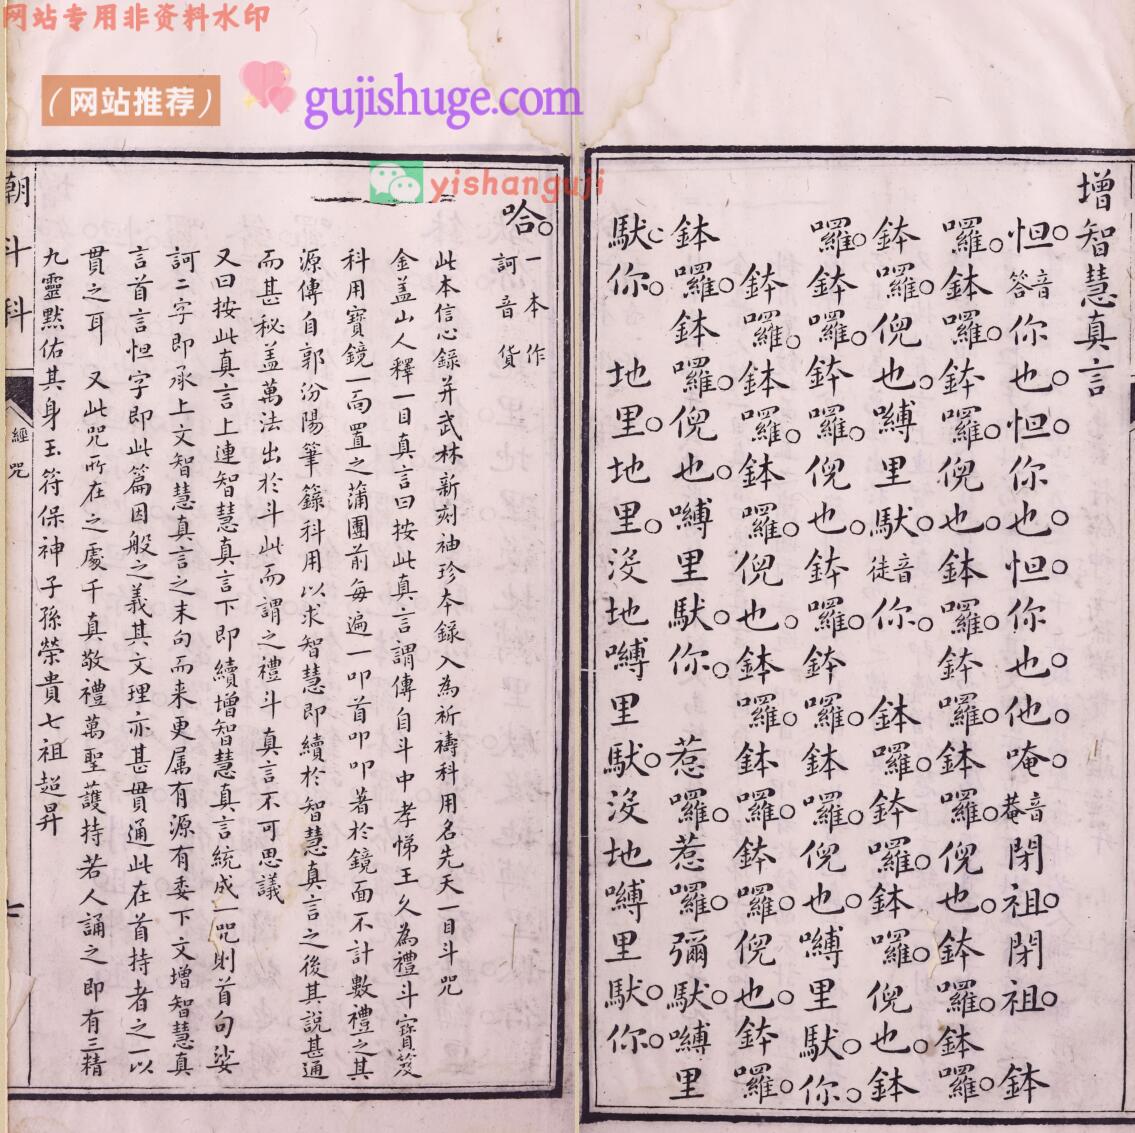 网站专用非资料水印
（网站推荐）
gujishuge.com
yishanguji
增智慧真言
怛音答你也。怛你也。怛你也。他。唵音菴閉祖。閉祖。　鉢
囉。鉢囉。鉢囉。倪也。鉢囉。鉢囉。鉢囉。倪也。鉢囉。鉢囉。
鉢囉。倪也。嚩里馱。音徒你。　鉢囉。鉢囉。鉢囉。倪也。鉢
囉。鉢囉。鉢囉。倪也。鉢囉。鉢囉。鉢囉。倪也。嚩里馱。你。
鉢囉。鉢囉。鉢囉。倪也。鉢囉。鉢囉。鉢囉。倪也。鉢囉。
鉢囉。鉢囉。倪也。嚩里馱。你。　惹囉。惹囉。彌馱。嚩里
馱。你。　地里。地里。沒地嚩里馱。沒地嚩里馱。你。
哈。一本作訶音貨
此本信心錄并武林新刻袖珍本錄入為祈禱科用名先天一目斗咒
金盖山人釋一目真言曰按此真言謂傳自斗中孝悌王久為禮斗寶笈
科用寶鏡一靣置之蒲團前每遍一叩首叩叩著於鏡面不計數禮之其
源傳自郭汾陽筆籙科用以求智慧即續於智慧真言之後其說甚通
而甚秘盖萬法出於斗此而謂之禮斗真言不可思議
又曰按此真言上連智慧真言下即續增智慧真言統成一咒則首句娑
訶二字即承上文智慧真言之末句而来更属有源有委下文增智慧真
言首言怛字即此篇因般之義其文理亦甚貫通此在首持者之一以
貫之耳　又此咒所在之處千真敬禮萬聖護持若人誦之即有三精
九靈黙佑其身玉符保神子孫榮貴七祖超昇
朝斗科
經咒
七